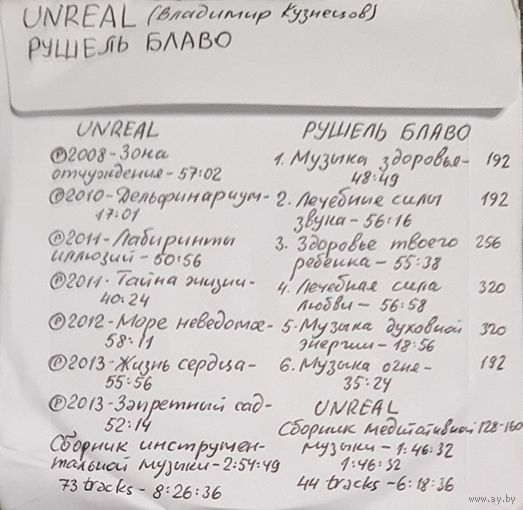 UNREAL (Владимир Кузнецов)
РУШЕЛЬ БЛАВО
UNREAL
℗2008-Зона
отчуждение-57:02
℗2010-Дельфинариум-
17:01
℗2011-Лабиринты
иллюзий-50:56
℗2011-Тайна жизни-
40:24
℗2012-Море неведомое-
58:11
℗2013-Жизнь сердца-
55:56
℗2013-Запретный сад-
52:14
Сборник инструмен-
тальной музыки-2:54:49
73 tracks-8:26:36
РУШЕЛЬ БЛАВО
1. Музыка здоровье- 192
48:49
2. Лечебные силы 192
звука-56:16
3. Здоровье твоего 256
ребенка-55:38
4. Лечебная сила 320
любви-56:58
5. Музыка духовной 320
энергии-18:56
6. Музыка огня- 192
35:24
UNREAL
Сборник медитативной 128-160
музыки-1:46:32
1:46:32
44 tracks-6:18:36
www.ay.by